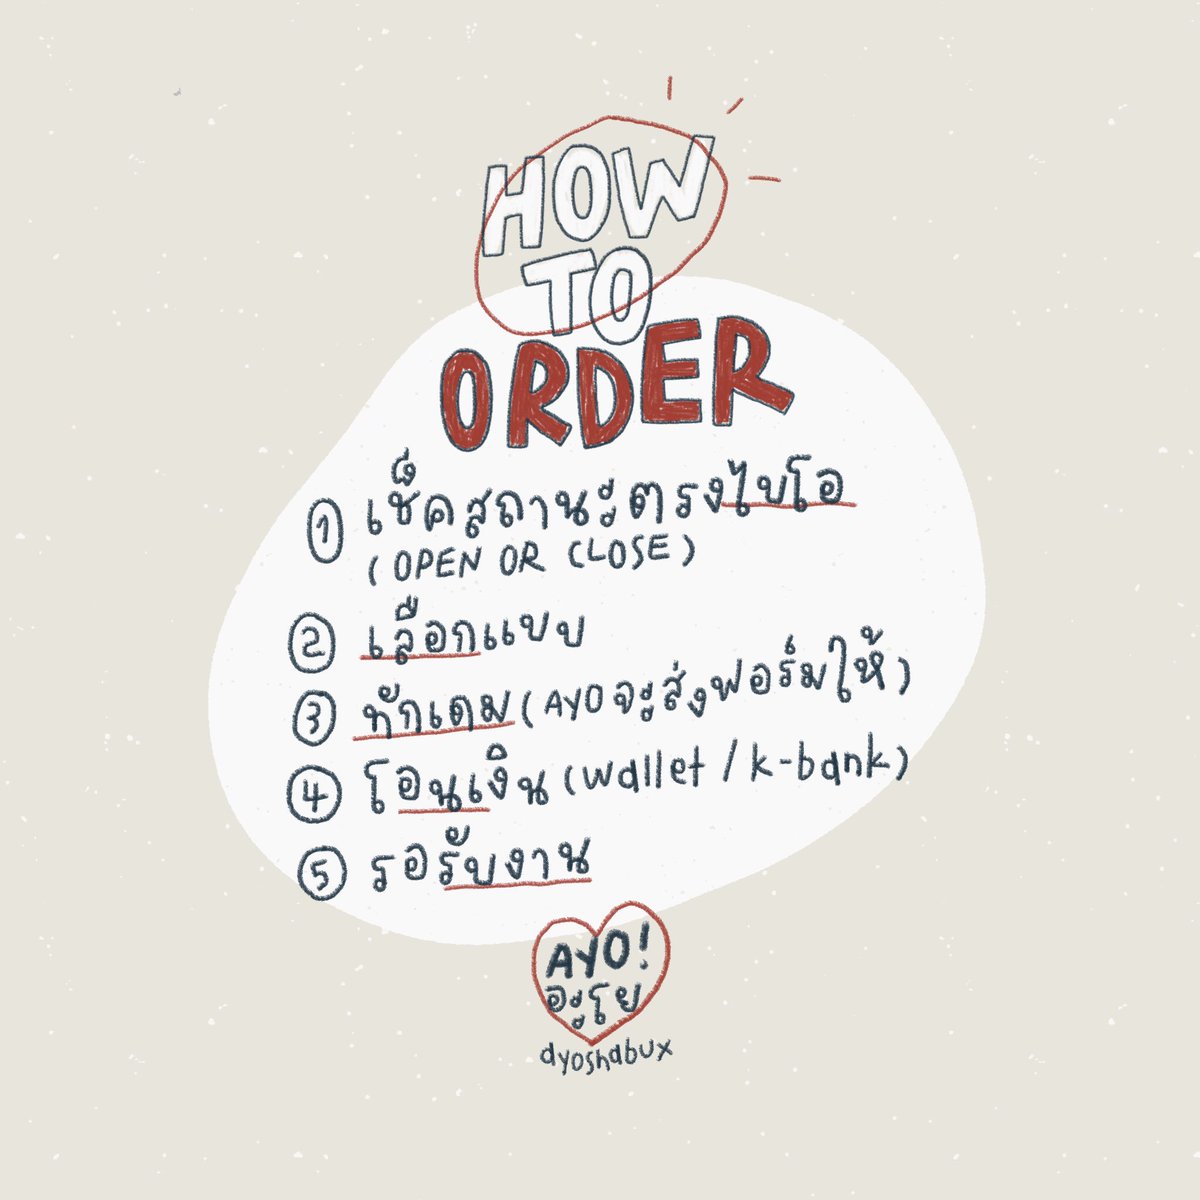 HOW
TO
ORDER
① เช็คสถานะตรงไบโอ
(OPEN OR CLOSE)
② เลือกแบบ
③ ทักเดม (AYO จะส่งฟอร์มให้)
④ โอนเงิน (wallet / k-bank)
⑤ รอรับงาน
AYO!
อะโย
ayoshabux